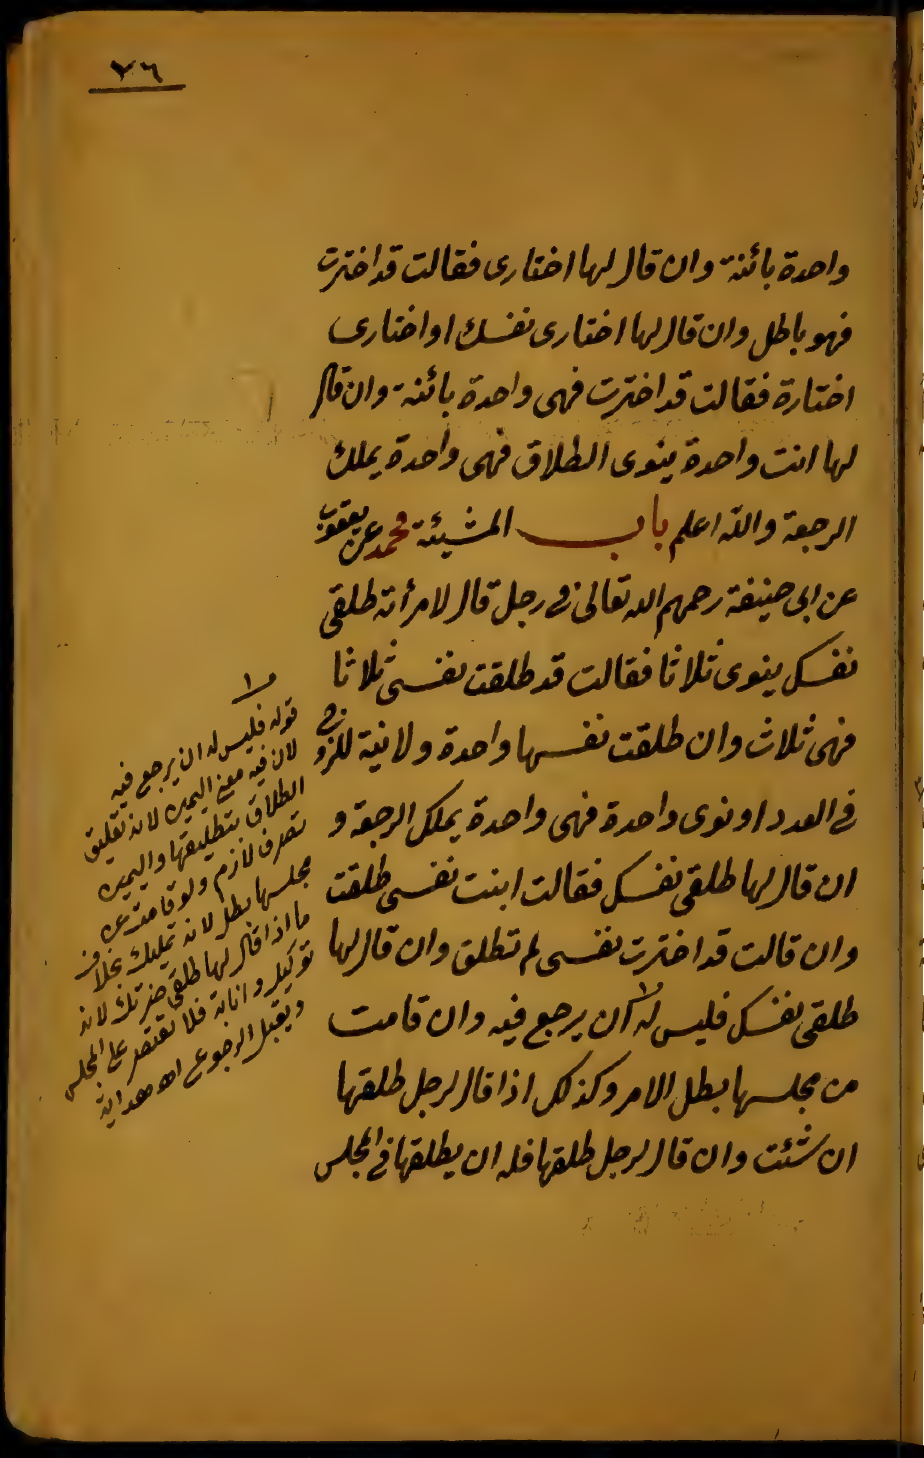 ٧٦
واحدة بائنة وان قال لها اختارى فقالت قد اخترت
فهو باطل وان قال لها اختارى نفسك او اختارى
اختارة فقالت قد اخترت فهى واحدة بائنة وان قال
لها انت واحدة ينوى الطلاق فهى واحدة يملك
الرجعة والله اعلم باب المشيئة محمد عن يعقوب
عن ابى حنيفة رحمهم الله تعالى فى رجل قال لامرأته طلقى
نفسك ينوى ثلاثا فقالت قد طلقت نفسى ثلاثا
فهى ثلاث وان طلقت نفسها واحدة ولا نية للزوج
فى العدد او نوى واحدة فهى واحدة يملك الرجعة و
ان قال لها طلقى نفسك فقالت ابنت نفسى طلقت
وان قالت قد اخترت نفسى لم تطلق وان قال لها
طلقى نفسك فليس له١ ان يرجع فيه وان قامت
من مجلسها بطل الامر وكذلك اذا قال لرجل طلقها
ان شئت وان قال لرجل طلقها فله ان يطلقها فى المجلس
١
قوله فليس له ان يرجع فيه
لان فيه معنى اليمين لانه تعليق
الطلاق بتطليقها واليمين
تصرف لازم ولو قامت عن
مجلسها بطل لانه تمليك بخلاف
ما اذا قال لها طلقى ضرتك لانه
توكيل وانابة فلا يقتصر على المجلس
ويقبل الرجوع اهـ هداية